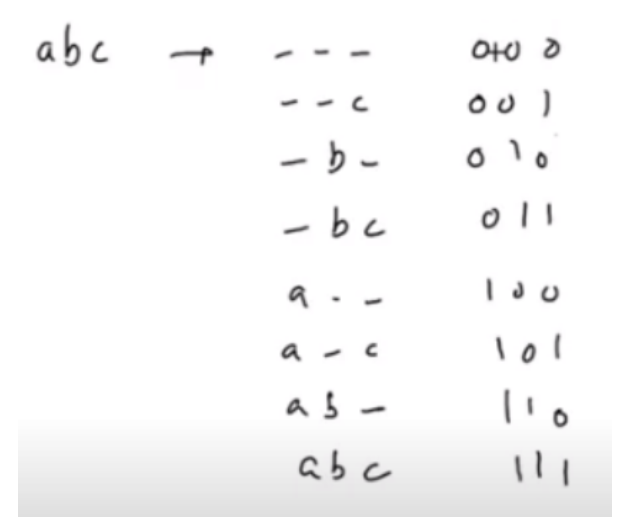 abc → - - - 0 0 0
- - c 0 0 1
- b - 0 1 0
- b c 0 1 1
a - - 1 0 0
a - c 1 0 1
a b - 1 1 0
a b c 1 1 1